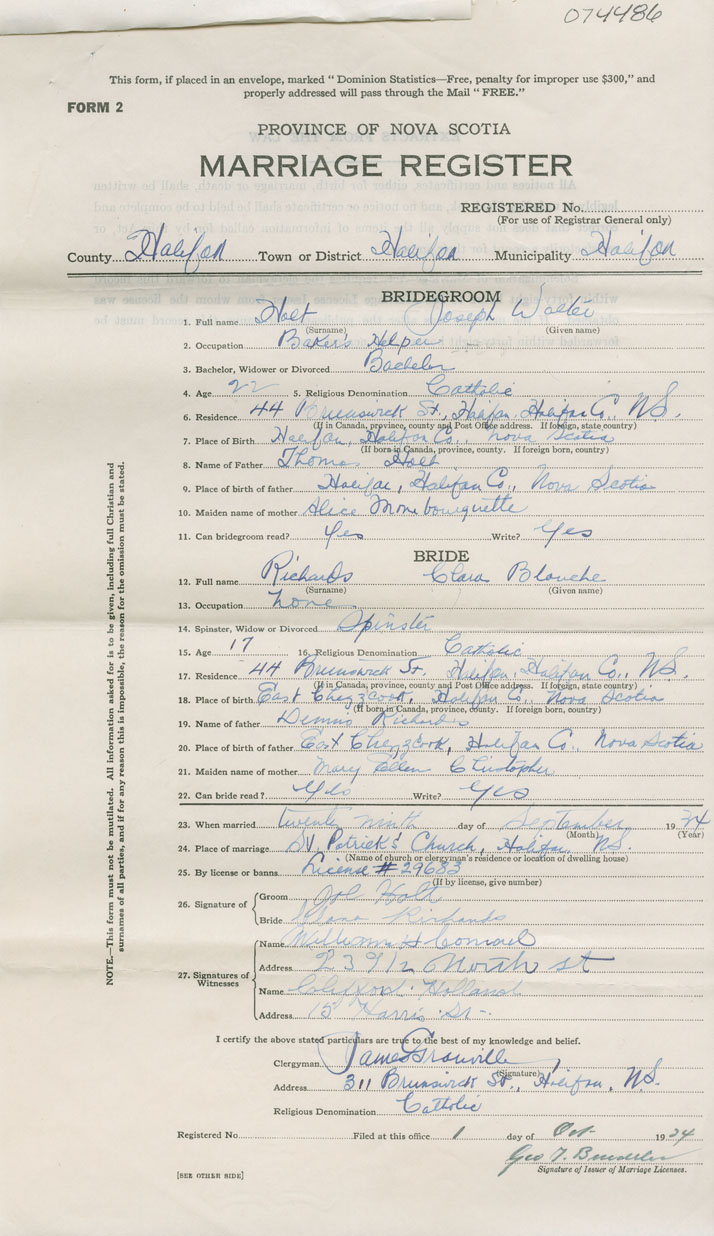 074486
This form, if placed in an envelope, marked “ Dominion Statistics—Free, penalty for improper use $300,” and
properly addressed will pass through the Mail “ FREE.”
FORM 2
PROVINCE OF NOVA SCOTIA
MARRIAGE REGISTER
REGISTERED No.
(For use of Registrar General only)
County Halifax Town or District Halifax Municipality Halifax
BRIDEGROOM
1. Full name Holt Joseph Walter
(Surname) (Given name)
2. Occupation Baker's Helper
3. Bachelor, Widower or Divorced Bachelor
4. Age 22 5. Religious Denomination Catholic
6. Residence 44 Brunswick St., Halifax, Halifax Co., N.S.
(If in Canada, province, county and Post Office address. If foreign, state country)
7. Place of Birth Halifax, Halifax Co., Nova Scotia
(If born in Canada, province, county. If foreign born, country)
8. Name of Father Thomas Holt
9. Place of birth of father Halifax, Halifax Co., Nova Scotia
10. Maiden name of mother Alice
11. Can bridegroom read? Yes Write? Yes
BRIDE
12. Full name Richards Clara Blanche
(Surname) (Given name)
13. Occupation None
14. Spinster, Widow or Divorced Spinster
15. Age 17 16. Religious Denomination Catholic
17. Residence 44 Brunswick St. Halifax, Halifax Co., N.S.
(If in Canada, province, county and Post Office address. If foreign, state country)
18. Place of Birth East Chezzcook, Halifax Co., Nova Scotia
(If born in Canada, province, county. If foreign born, country)
19. Name of father Dennis Richards
20. Place of birth of father East Chezzcook, Halifax Co. Nova Scotia
21. Maiden name of mother Mary Ellen Christopher
22. Can bride read ? Yes Write? Yes
23. When married twenty ninth day of September 19 24
(Month) (Year)
24. Place of marriage St. Patrick's Church, Halifax N.S.
(Name of church or clergyman's residence or location of dwelling house)
25. By license or banns License # 29683
(If by license, give number)
26. Signature of Groom Joe Holt
Bride Richards
27. Signatures of Witnesses
Name William H Conrad
Address 239 1/2 North st
Name Clifford Holland
Address 15 Harris St-
I certify the above stated particulars are true to the best of my knowledge and belief.
Clergyman James Granville
(Signature)
Address 311 Brunswick St., Halifax, N.S.
Religious Denomination Catholic
Registered No. Filed at this office 1 day of Oct 19 24
Geo T.
Signature of Issuer of Marriage Licenses.
[SEE OTHER SIDE]
NOTE.—This form must not be mutilated. All information asked for is to be given, including full Christian and
surnames of all parties, and if for any reason this is impossible, the reason for the omission must be stated.